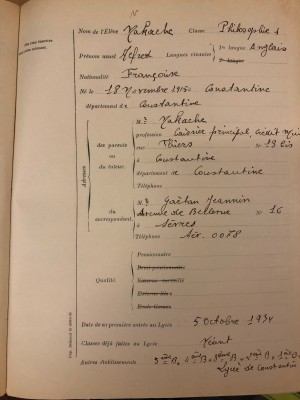 Nom de l'Élève Nakache Classe Philosophie 1
Prénom usuel Alfred Langues vivantes 1re langue Anglais
2e langue
Nationalité Française
Né le 18 Novembre 1915 Constantine
département de Constantine
Adresses
des parents
ou
du tuteur
M. Nakache
profession Caissier principal, Crédit Mun
rue Thiers N° 13 bis
à Constantine
département de Constantine
Téléphone
du correspondant
M. Gaëtan Jeannin
Avenue de Bellevue N° 16
à Sèvres
Téléphone Sèv. 0078
Qualité
Pensionnaire
Demi-pensionnaire
Externe surveillé
Externe libre
Date de sa première entrée au Lycée 5 Octobre 1934
Classes déjà faites au Lycée Néant
Autres établissements
Lycée de Constantine